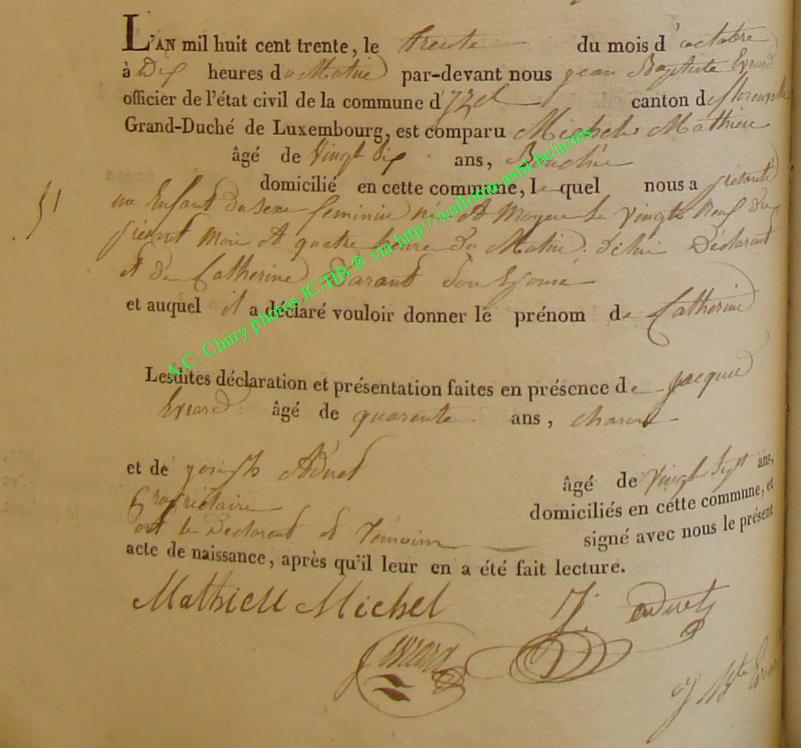 L'AN mil huit cent trente, le trente du mois d'octobre
à Dix heures du Matin par-devant nous jean Baptiste Evrard
officier de l'état civil de la commune d'Izel canton de florenville
Grand-Duché de Luxembourg, est comparu Michel Mathieu
âgé de Vingt Six ans,
domicilié en cette commune, le quel nous a présenté
51
un Enfant du sexe feminin né à Moyen le Vingt Neuf du
présent Mois à quatre heure du Matin de lui Déclarant
et de Catherine son Epouse
et auquel il a déclaré vouloir donner le prénom de Catherine
Lesdites déclaration et présentation faites en présence de jacque
Evrard âgé de quarente ans,
et de joseph Aduet âgé de Vingt Sept ans,
propriétaire domiciliés en cette commune, et
ont le Déclarant et Témoins signé avec nous le présent
acte de naissance, après qu'il leur en a été fait lecture.
Mathieu Michel J.
J Bte Evrard
A.C. Chiny photos JCTHB ® via http://wallonia.asbl.be/actes